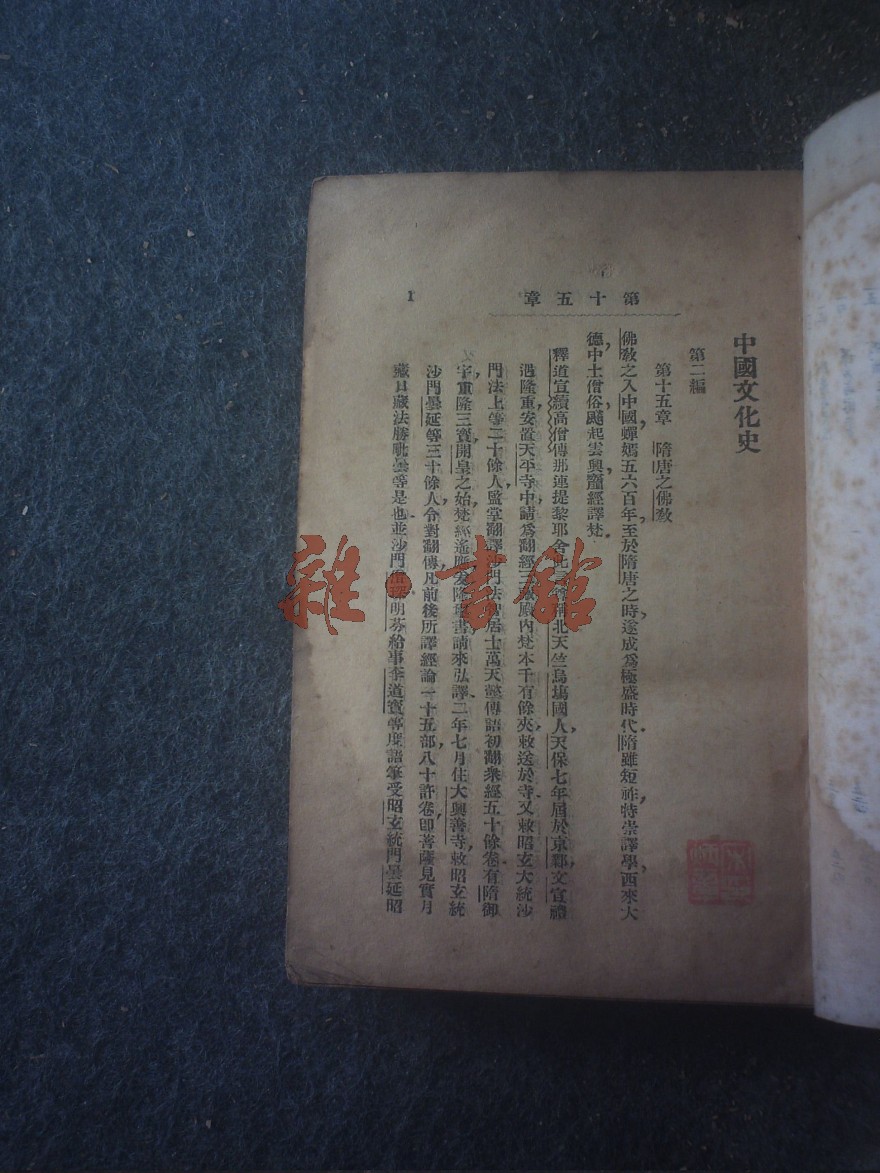 第十五章
1
中國文化史
第二編
第十五章 隋唐之佛敎
佛敎之入中國，蟬嫣五六百年，至於隋唐之時，遂成爲極盛時代．隋雖短祚，特崇譯學，西來大
德，中土僧俗，飈起雲興，齎經譯梵．
釋道宣續高僧傳那連提黎耶舍，北天竺烏場國人，天保七年，屆於京鄴，文宣禮
遇隆重，安置天平寺中，請爲翻經三藏，殿內梵本千有餘夾，敕送於寺，又敕昭玄大統沙
門法上等二十餘人，監掌翻譯，沙門法智居士萬天懿傳語，初翻衆經五十餘卷．有隋御
宇，重隆三寶，開皇之始，梵經遙應，爰降璽書，請來弘譯，二年七月，住大興善寺，敕昭玄統
沙門曇延等三十餘人，令對翻傳，凡前後所譯經論一十五部，八十許卷，卽菩薩見實月
藏日藏法勝毗曇等是也．並沙門明芬給事李道寶等度語筆受，昭玄統門曇延昭
雜·書館